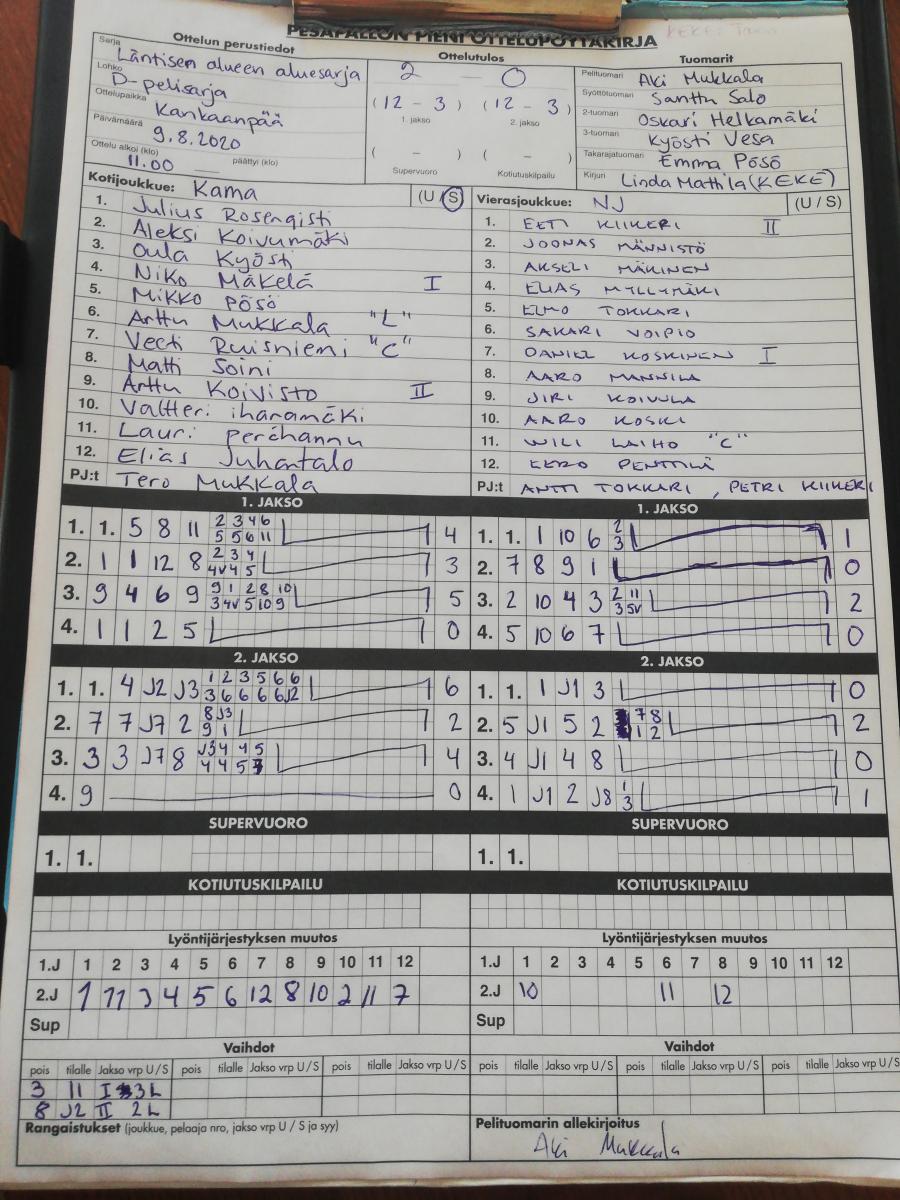 PESÄPALLON PIENI OTTELUPÖYTÄKIRJA
Ottelun perustiedot
Sarja Läntisen alueen aluesarja
Lohko D-pelisarja
Ottelupaikka Kankaanpää
Päivämäärä 9.8.2020
Ottelu alkoi (klo) 11.00 päättyi (klo)
Ottelutulos
2 — 0
(12 - 3) (12 - 3)
1. jakso 2. jakso
( - ) ( - )
Supervuoro Kotiutuskilpailu
Tuomarit
Pelituomari Aki Mukkala
Syöttötuomari Santtu Salo
2-tuomari Oskari Helkamäki
3-tuomari Kyösti Vesa
Takarajatuomari Emma Pösö
Kirjuri Linda Mattila (KEKE)
Kotijoukkue: Kama (U / S)
1. Julius Rosenqisti
2. Aleksi Koivumäki
3. Oula Kyösti
4. Niko Mäkelä I
5. Mikko Pösö
6. Arttu Mukkala "L"
7. Veeti Ruisniemi "C"
8. Matti Soini
9. Arttu Koivisto II
10. Valtteri iharamäki
11. Lauri
12. Elias Juhantalo
PJ:t Tero Mukkala
Vierasjoukkue: NJ (U / S)
1. EETI KIIKERI II
2. JOONAS MÄNNISTÖ
3. AKSELI MÄKINEN
4. ELIAS MYLLYMÄKI
5. ELMO TOKKARI
6. SAKARI VOIPIO
7. DANIEL KOSKINEN I
8. AARO MANNILA
9. JIRI KOIVULA
10. AARO KOSKI
11. WILI LAIHO "C"
12. EERO PENTTILÄ
PJ:t ANTTI TOKKARI, PETRI KIIKERI
1. JAKSO
1. 1. 5 8 11 2 3 4 6 4
5 5 6 11
2. 1 1 12 8 2 3 4 3
4V 4 5
3. 9 4 6 9 9 1 2 8 10 5
3 4V 5 10 9
4. 1 1 2 5 0
1. JAKSO
1. 1. 1 10 6 2 1
3
2. 7 8 9 1 0
3. 2 10 4 3 2 11 2
3 5V
4. 5 10 6 7 0
2. JAKSO
1. 1. 4 J2 J3 1 2 3 5 6 6 6
3 6 6 6 6 J2
2. 7 7 J7 2 8 J3 2
9 1
3. 3 3 J7 8 J3 4 4 5 4
4 4 5 7
4. 9 0
2. JAKSO
1. 1. 1 J1 3 0
2. 5 J1 5 2 7 8 2
1 2
3. 4 J1 4 8 0
4. 1 J1 2 J8 1 1
3
SUPERVUORO
1. 1.
SUPERVUORO
1. 1.
KOTIUTUSKILPAILU
KOTIUTUSKILPAILU
Lyöntijärjestyksen muutos
1.J 1 2 3 4 5 6 7 8 9 10 11 12
2.J 1 11 3 4 5 6 12 8 10 2 11 7
Sup
Lyöntijärjestyksen muutos
1.J 1 2 3 4 5 6 7 8 9 10 11 12
2.J 10 11 12
Sup
Vaihdot
pois tilalle Jakso vrp U / S pois tilalle Jakso vrp U / S pois tilalle Jakso vrp U / S
3 11 I 3 L
8 J2 II 2 L
Vaihdot
pois tilalle Jakso vrp U / S pois tilalle Jakso vrp U / S pois tilalle Jakso vrp U / S
Rangaistukset (joukkue, pelaaja nro, jakso vrp U / S ja syy)
Pelituomarin allekirjoitus
Aki Mukkala